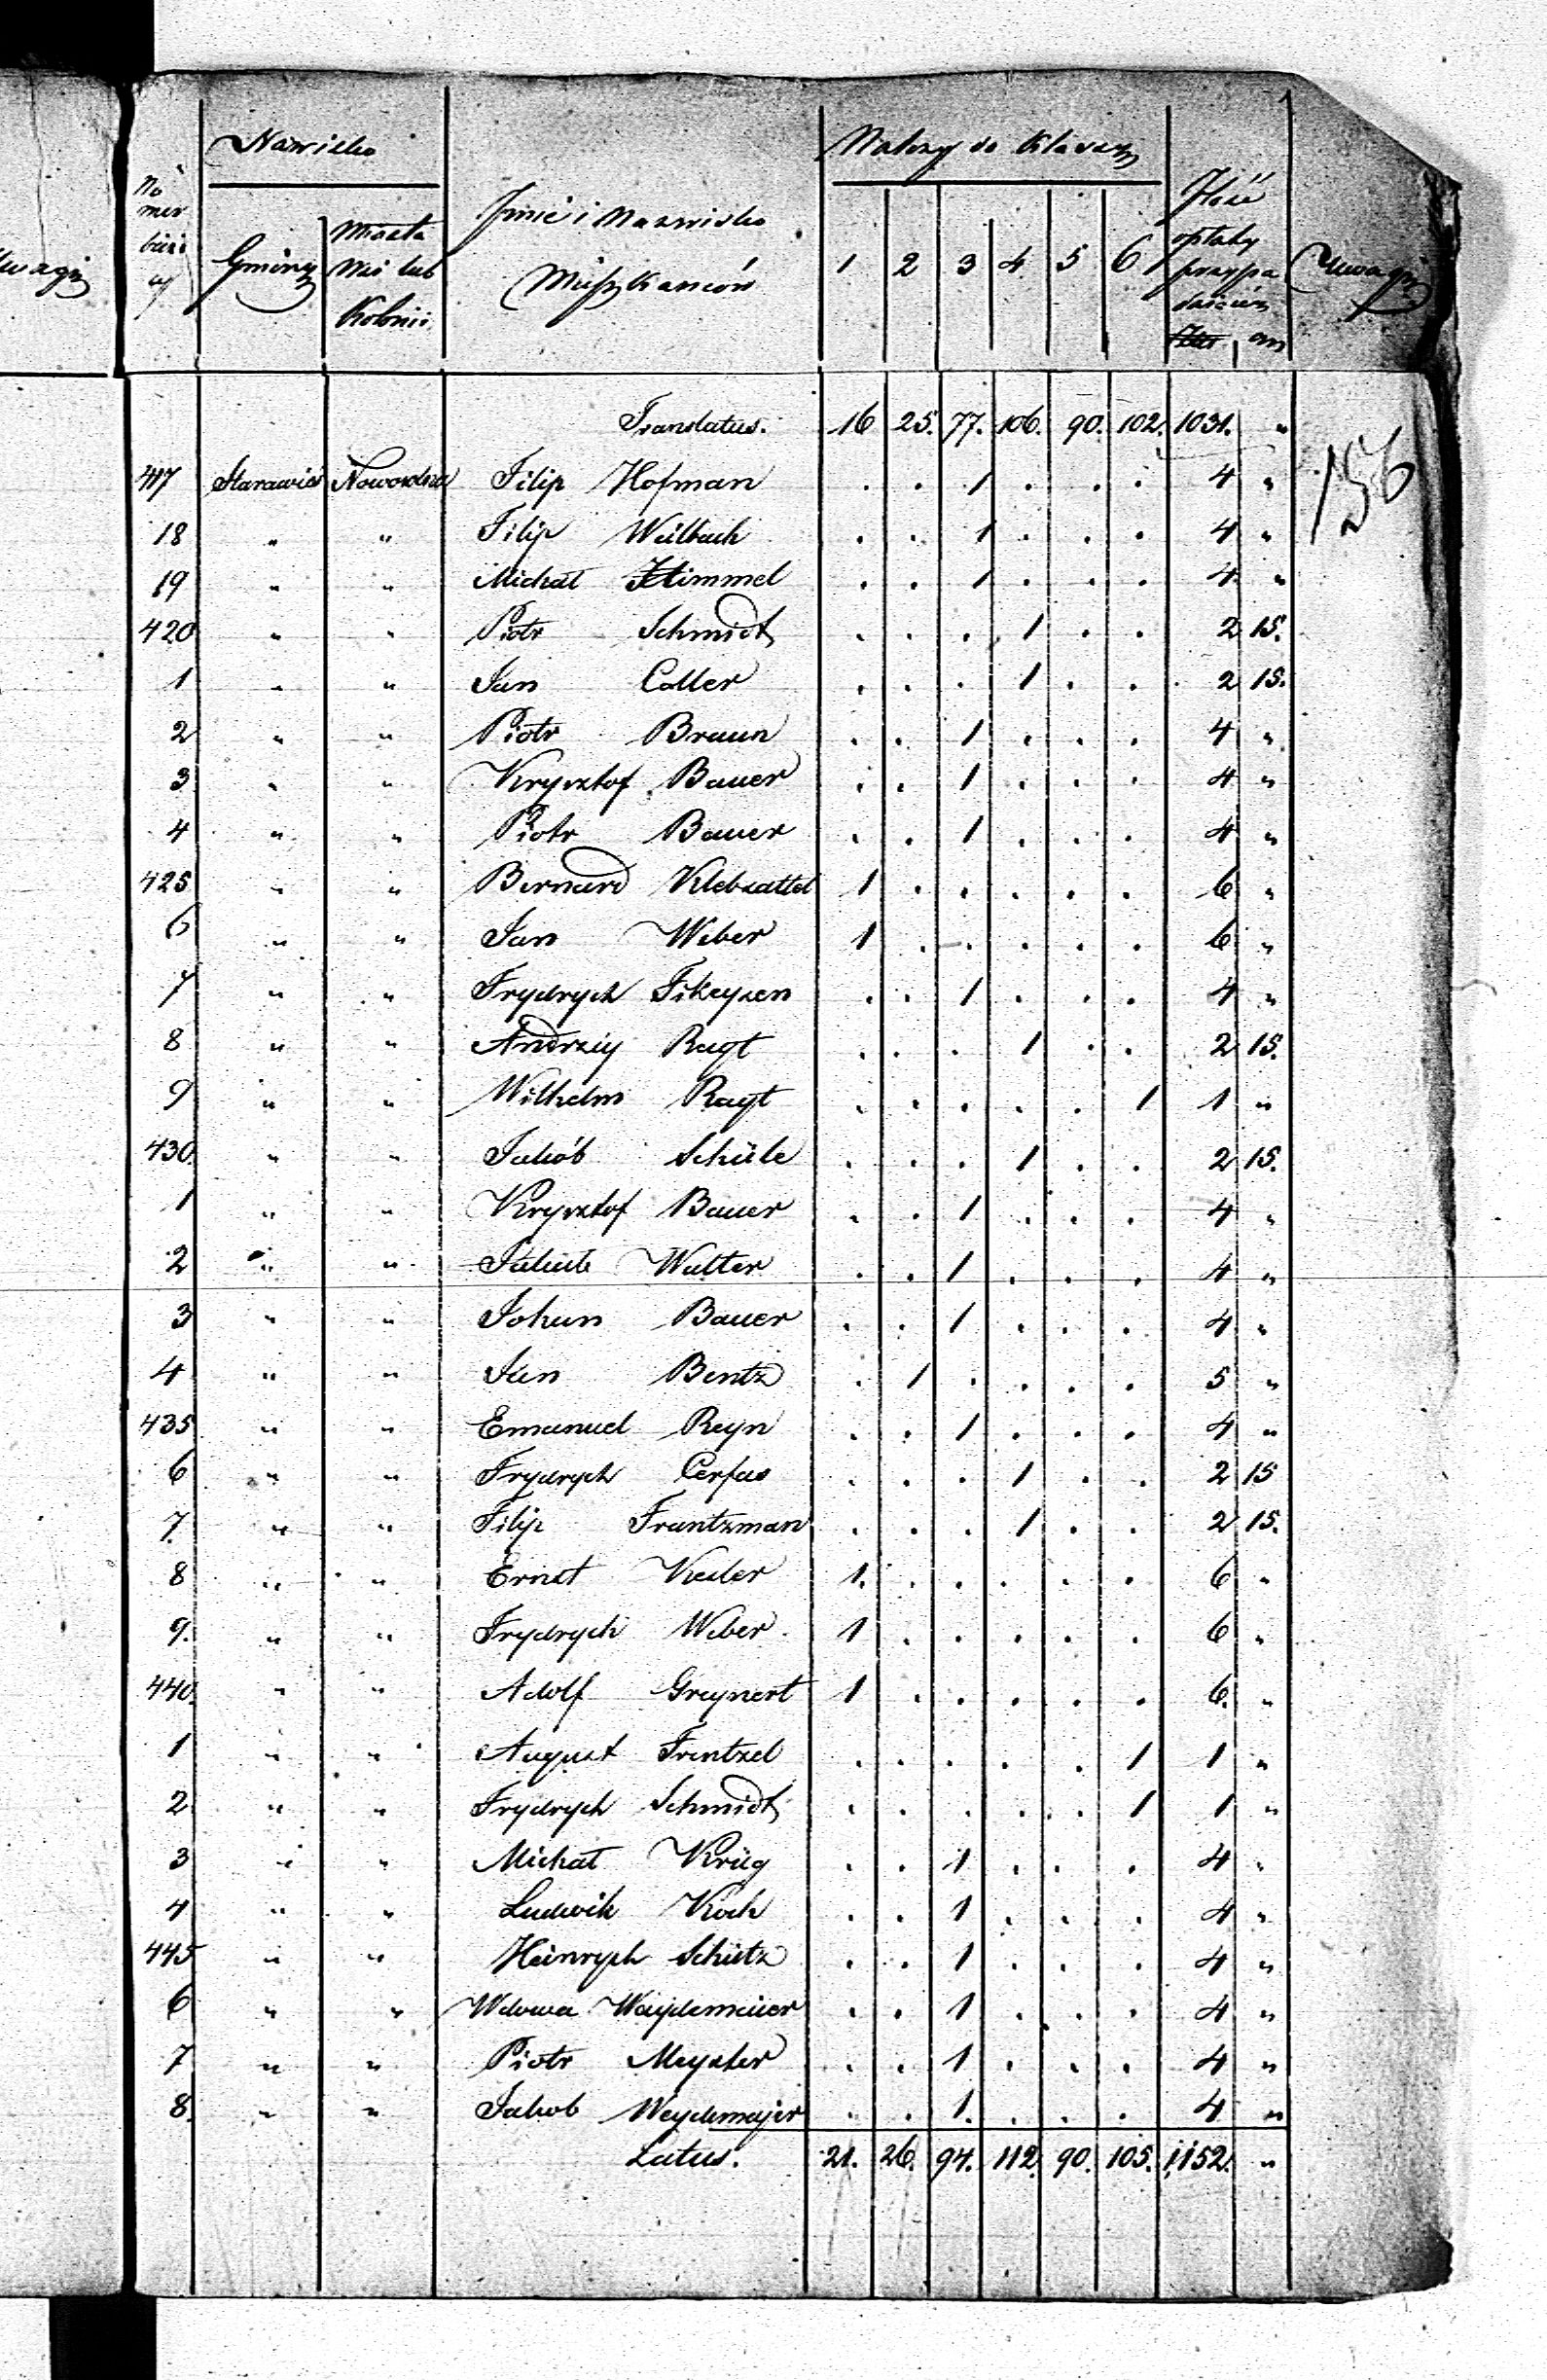 Nazwisko
Należy do Klassy
No
mer
bieżą
cy
Gminy
Miasta
Wsi lub
Kolonii
Jmie i Nazwisko
Mieszkańców
1 2 3 4 5 6
Jlość
opłaty
przypa
Uwagi
Translatus. 16 25. 77. 106. 90. 102. 1031. "
156
417 Starawieś Nowowola Filip Hofman . . 1 . . . 4 "
18 " " Filip Weilbach . . 1 . . . 4 "
19 " " Michał Himmel . . 1 . . . 4 "
420 " " Piotr Schmidt . . . 1 . . 2 15.
1 " " Jan Coller . . . 1 . . 2 15.
2 " " Piotr Braun . . 1 . . . 4 "
3 " " Krysztof Bauer . . 1 . . . 4 "
4 " " Piotr Bauer . . 1 . . . 4 "
425 " " Bernard Klebsattel 1 . . . . . 6 "
6 " " Jan Weber 1 . . . . . 6 "
7 " " Frydrych Fikeysen . . 1 . . . 4 "
8 " " Andrzey Ragt . . . 1 . . 2 15.
9 " " Wilhelm Ragt . . . . . 1 1 "
430. " " Jakób Schüle . . . 1 . . 2 15.
1 " " Krysztof Bauer . . 1 . . . 4 "
2 " " Jakub Walter . . 1 . . . 4 "
3 " " Johan Bauer . . 1 . . . 4 "
4 " " Jan Bentz . 1 . . . . 5 "
435 " " Emanuel Reyn . . 1 . . . 4 "
6 " " Frydrych Cerfas . . . 1 . . 2 15
7. " " Filip Frantzman . . . 1 . . 2 15.
8 " " Ernst Keder 1. . . . . . 6 "
9. " " Frydrych Weber 1 . . . . . 6 "
440. " " Adolf Greynert 1 . . . . . 6. "
1 " " August Frentzel . . . . . 1 1 "
2 " " Frydrych Schmidt . . . . . 1 1 "
3 " " Michał Krüg . . 1 . . . 4 "
4 " " Ludwik Koch . . 1 . . . 4 "
445 " " Heinrych Schütz . . 1 . . . 4 "
6 " " Wdowa Waydemeier . . 1 . . . 4 "
7 " " Piotr Meyster . . 1 . . . 4 "
8. " " Jakob Weydemajer . . 1. . . . 4 "
Latus. 21. 26. 94. 112. 90. 105. 1,152. "